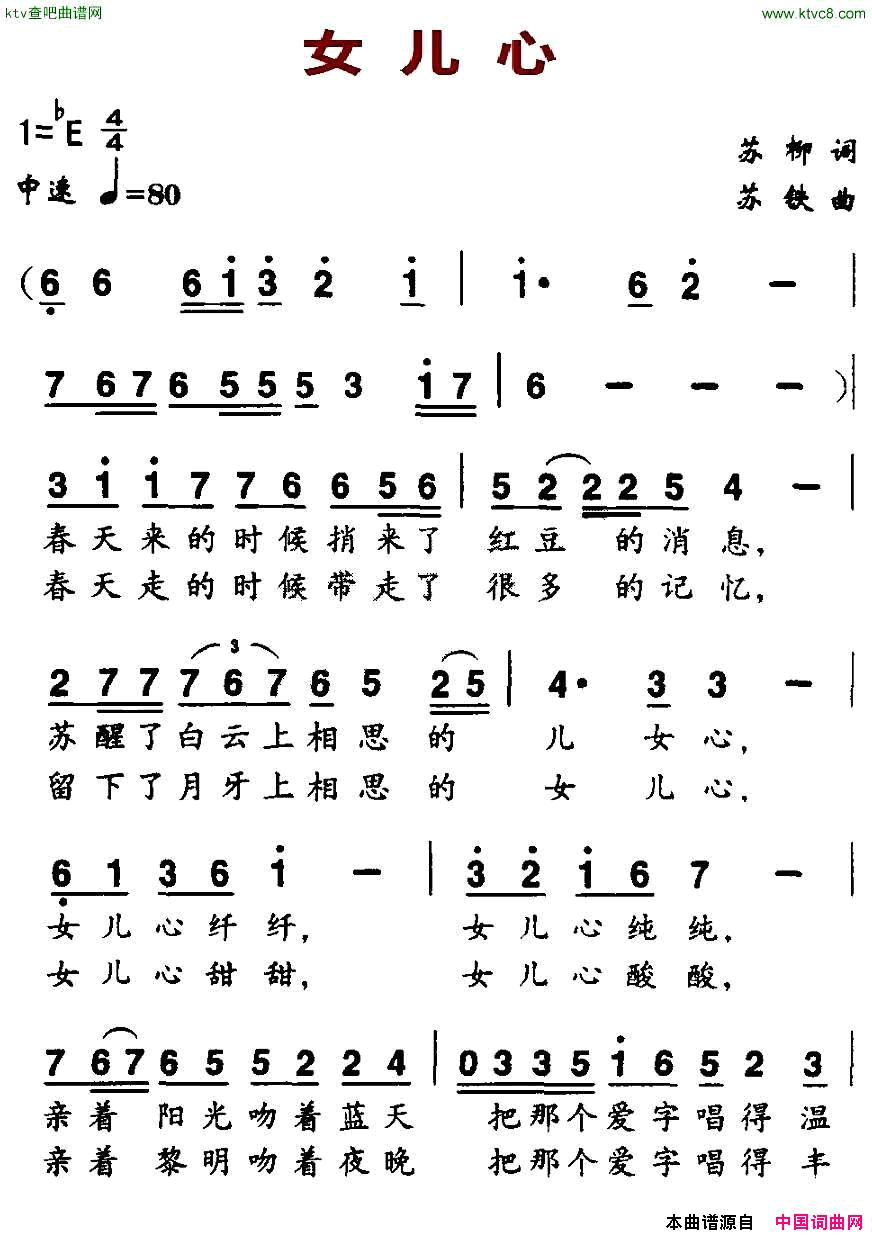 ktv查吧曲谱网 www.ktvc8.com
女儿心
1=♭E 4/4
苏柳词
中速 ♩=80
苏铁曲
(6 6 6 1 3 2 1 | 1· 6 2 - |
7 6 7 6 5 5 5 3 1 7 | 6 - - - )|
3 1 1 7 7 6 6 5 6 | 5 2 2 2 5 4 - |
春天来的时候捎来了 红豆 的消息,
春天走的时候带走了 很多 的记忆,
3
2 7 7 7 6 7 6 5 2 5 | 4· 3 3 - |
苏醒了白云上相思的 儿 女心,
留下了月牙上相思的 女 儿心.
6 1 3 6 1 - | 3 2 1 6 7 - |
女儿心纤纤, 女儿心纯纯,
女儿心甜甜, 女儿心酸酸,
7 6 7 6 5 5 2 2 4 | 0 3 3 5 1 6 5 2 3 |
亲着 阳光吻着蓝天 把那个爱字唱得温
亲着 黎明吻着夜晚 把那个爱字唱得丰
本曲谱源自 中国词曲网